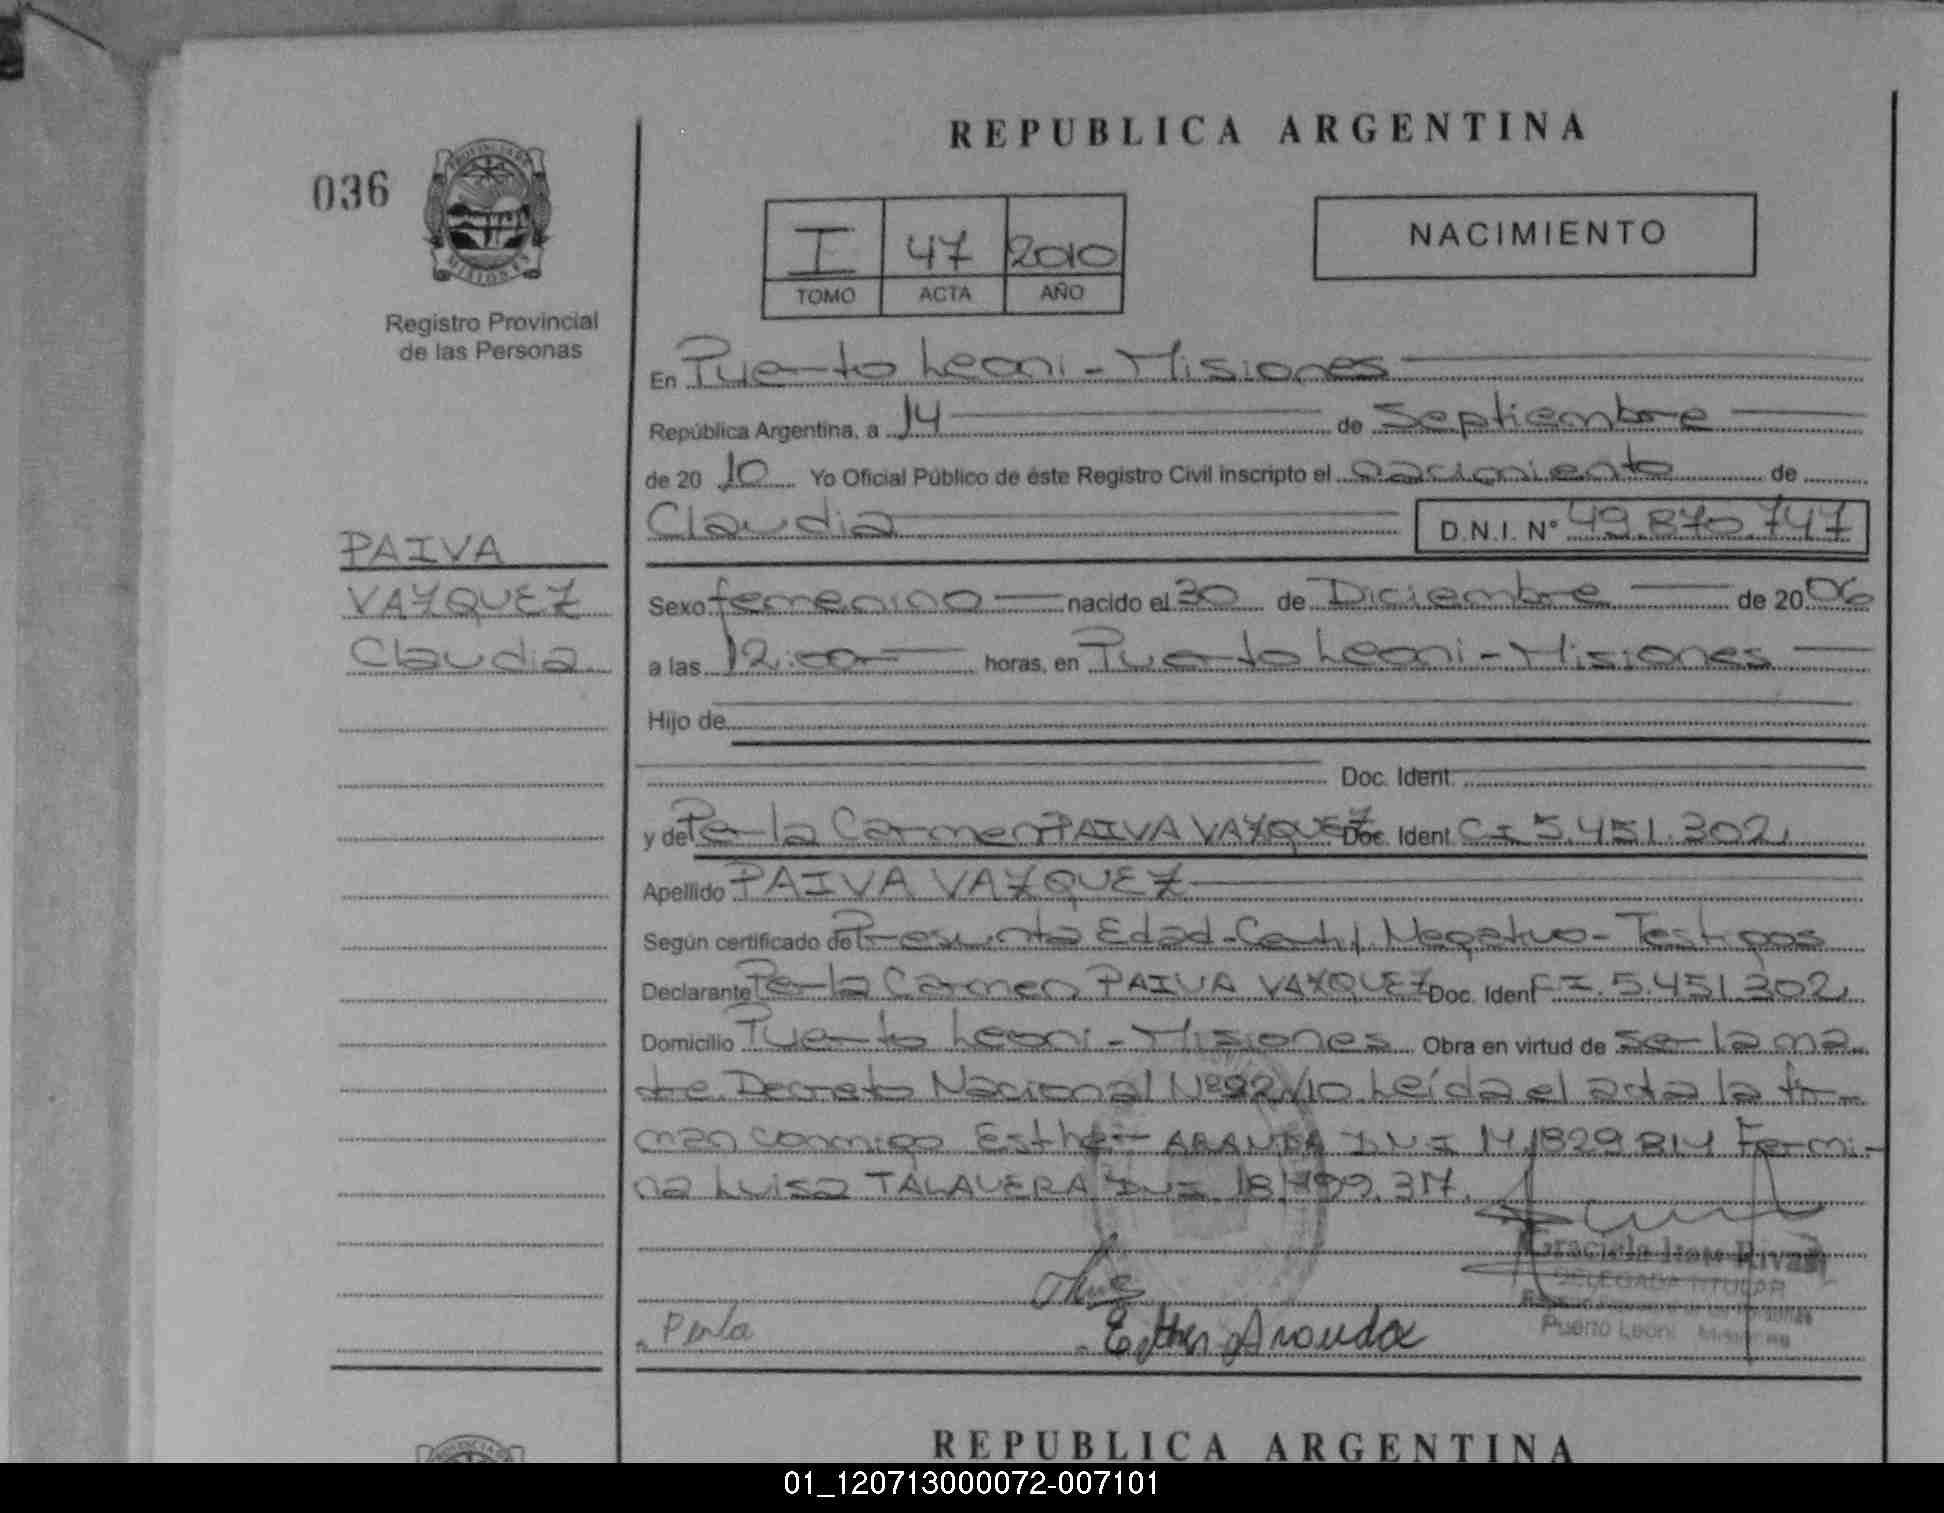 REPUBLICA ARGENTINA
036
PROVINCIA DE
MISIONES
Registro Provincial
de las Personas
I 47 2010
TOMO ACTA AÑO
NACIMIENTO
En Puerto Leoni - Misiones
República Argentina, a 14 de Septiembre
de 20 10 Yo Oficial Público de éste Registro Civil inscripto el nacimiento de
Claudia D.N.I. N° 49.870.747
PAIVA
VAZQUEZ
Claudia
Sexo femenino nacido el 30 de Diciembre de 20 06
a las 12:00 horas, en Puerto Leoni - Misiones
Hijo de
Doc. Ident.
y de Perla Carmen PAIVA VAZQUEZ Doc. Ident. CI 5.451.302
Apellido PAIVA VAZQUEZ
Según certificado de Presunta Edad - Cert. Negativo - Testigos
Declarante Perla Carmen PAIVA VAZQUEZ Doc. Ident CI. 5.451.302
Domicilio Puerto Leoni - Misiones Obra en virtud de ser la ma
dre. Decreto Nacional Nº 92/10. Leída el acta la fir-
man conmigo Esther ARANDA DNI 14.829.814 Fermi-
na Luisa TALAVERA DNI 18.799.317.
Graciela Rivas
DELEGADA TITULAR
Puerto Leoni Misiones
Perla
Esther Aranda
REPUBLICA ARGENTINA
01_120713000072-007101